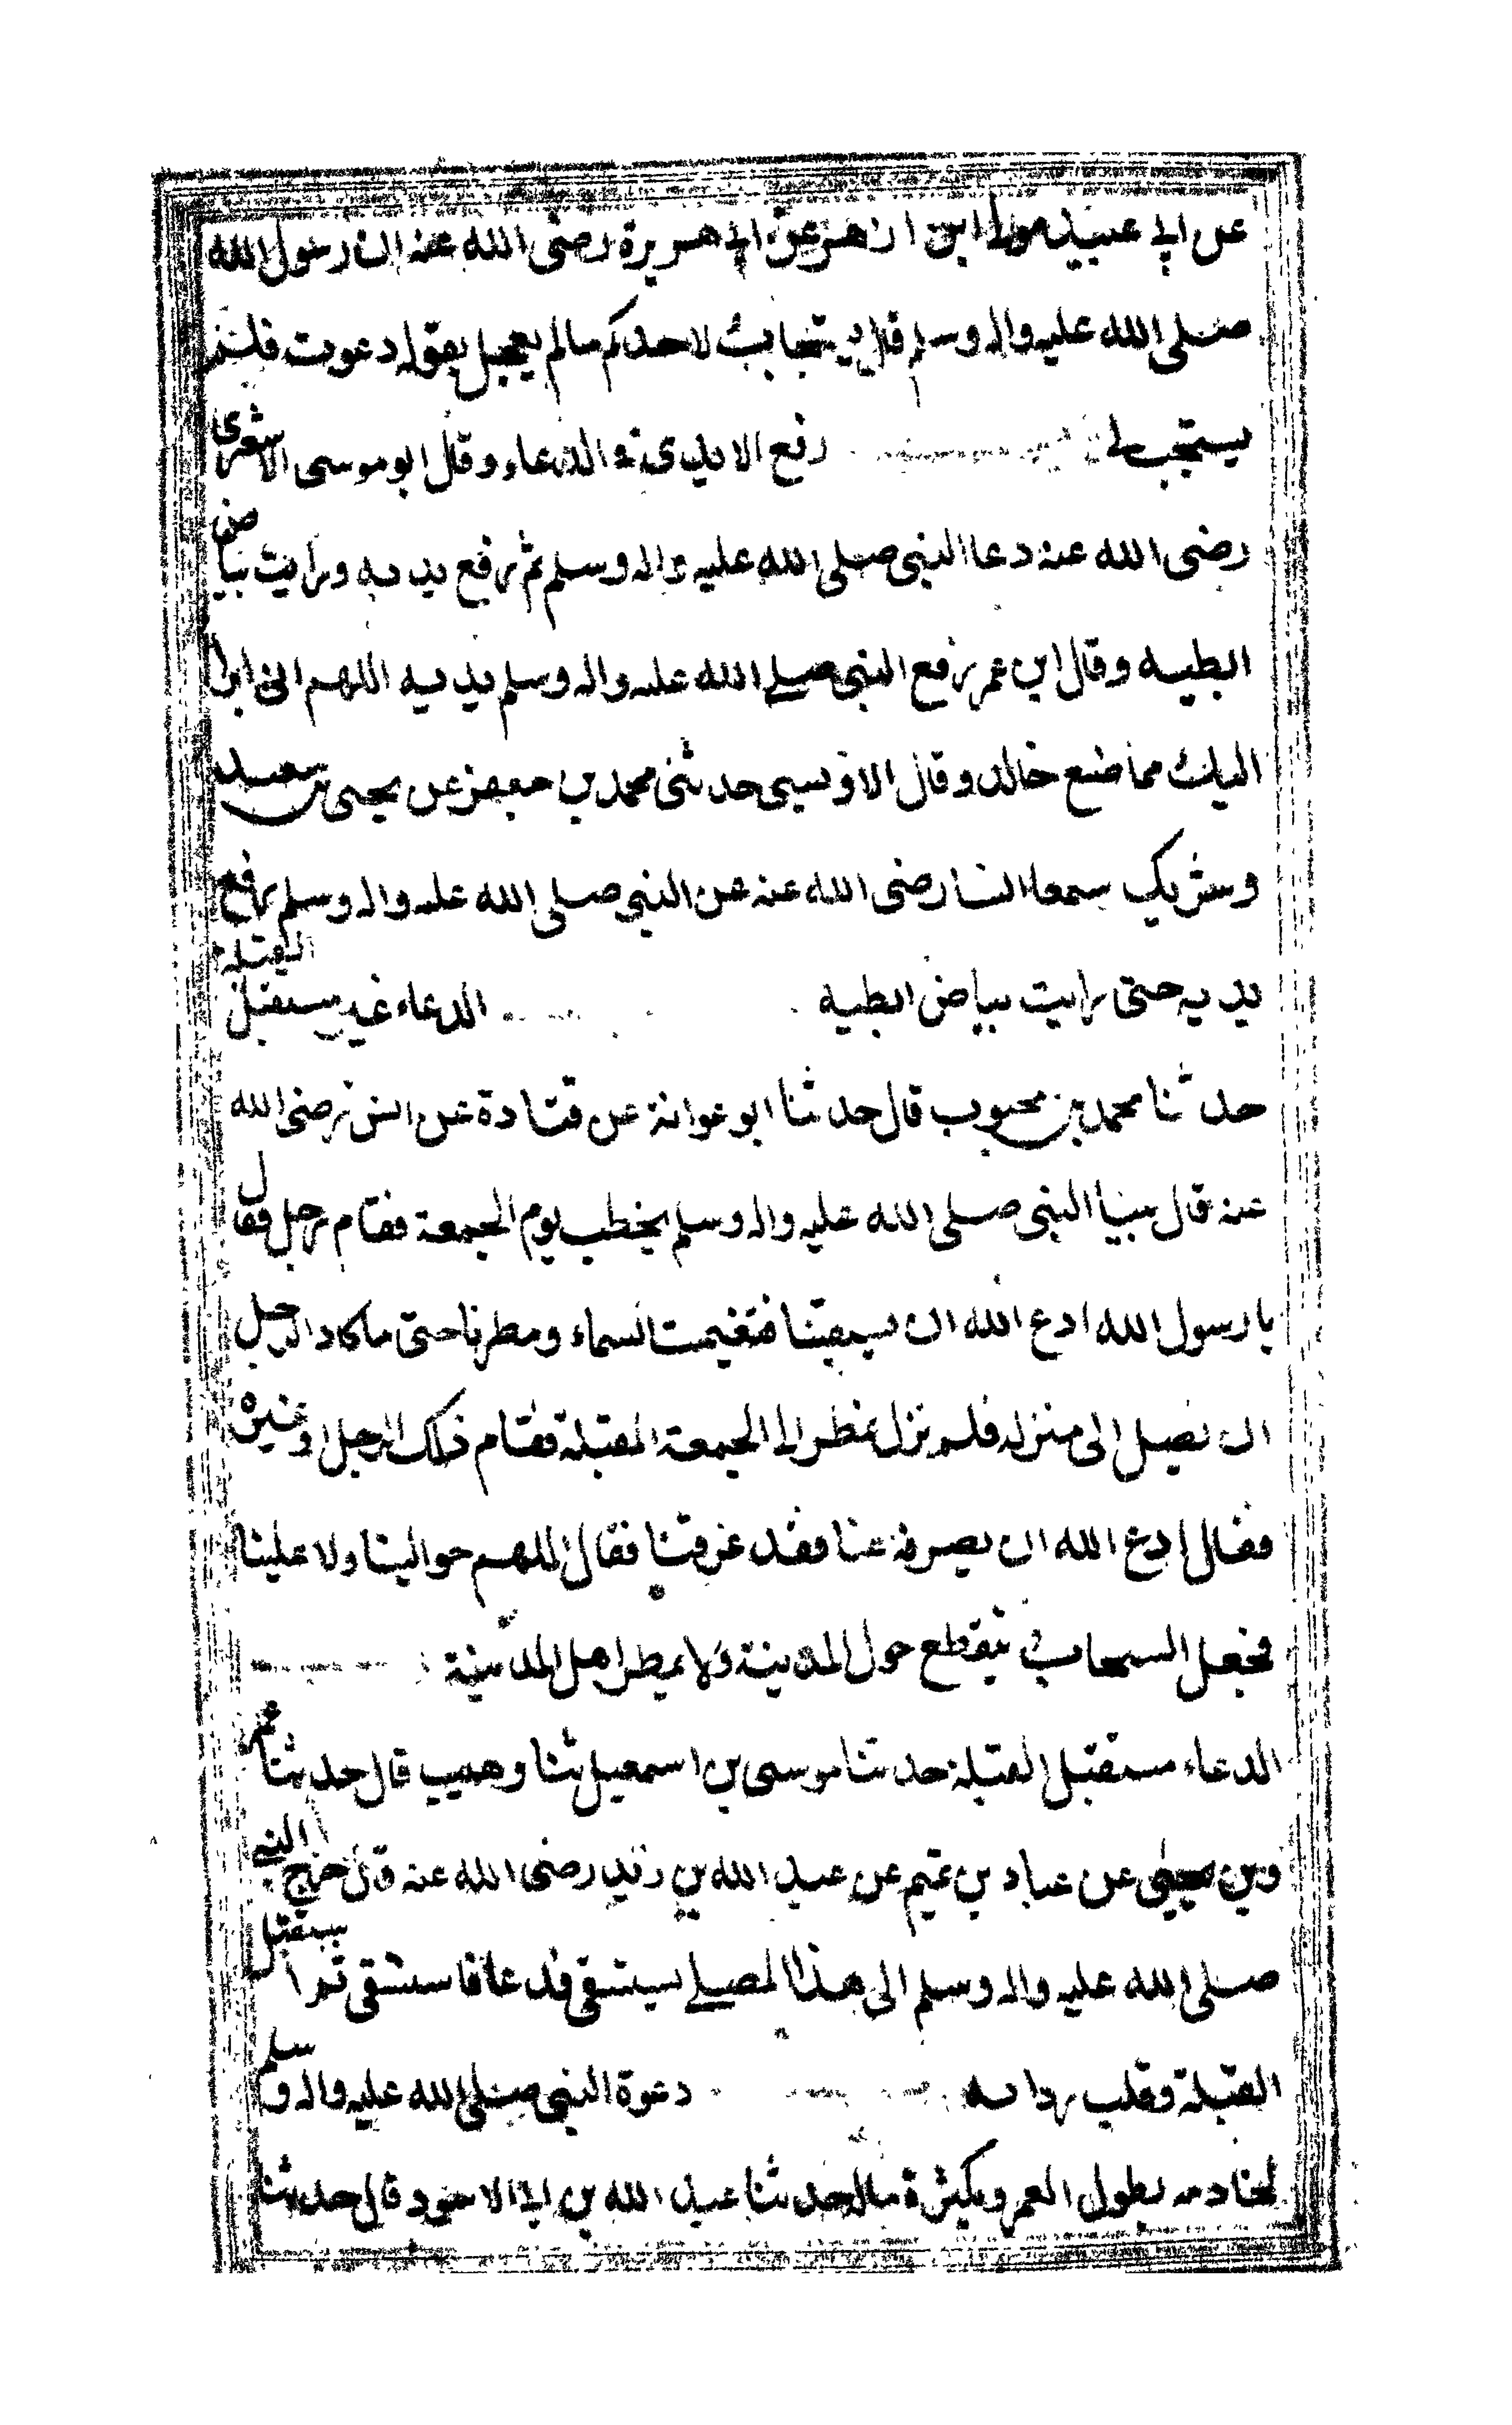 عن ابي عبيد مولى ابن ازهر عن ابي هريرة رضى الله عنه ان رسول الله
صلى الله عليه واله وسلم قال يستجاب لاحدكم مالم يعجل يقول دعوت فلم
يستجب لي رفع الايدي في الدعاء وقال ابو موسى الاشعرى
رضى الله عنه دعا النبي صلى الله عليه واله وسلم ثم رفع يديه ورايت بياض
ابطيه وقال ابن عمر رفع النبي صلى الله عليه واله وسلم يديه اللهم اني ابرا
اليك مما صنع خالد وقال الاويسي حدثني محمد بن جعفر عن يحيى بن سعيد
وشريك سمعا انسا رضى الله عنه عن النبي صلى الله عليه واله وسلم رفع
يديه حتى رايت بياض ابطيه الدعاء غير مستقبل القبلة
حدثنا محمد بن محبوب قال حدثنا ابو عوانة عن قتادة عن انس رضى الله
عنه قال بينا النبي صلى الله عليه واله وسلم يخطب يوم الجمعة فقام رجل فقال
يا رسول الله ادع الله ان يسقينا فتغيمت السماء ومطرنا حتى ماكاد الرجل
ان يصل الى منزله فلم نزل نمطر الى الجمعة المقبلة فقام ذلك الرجل او غيره
فقال ادع الله ان يصرفه عنا فقد غرقنا فقال اللهم حوالينا ولا علينا
فجعل السحاب يتقطع حول المدينة ولا يمطر اهل المدينة
الدعاء مستقبل القبلة حدثنا موسى بن اسمعيل ثنا وهيب قال حدثنا عمر
وبن يحيى عن عباد بن تميم عن عبد الله بن زيد رضى الله عنه قال خرج النبي
صلى الله عليه واله وسلم الى هذا المصلى يستسقى فدعا فاستسقى ثم استقبل
القبلة وقلب رداءه دعوة النبي صلى الله عليه واله وسلم
لخادمه بطول العمر وبكثرة ماله حدثنا عبد الله بن ابي الاسود قال حدثنا